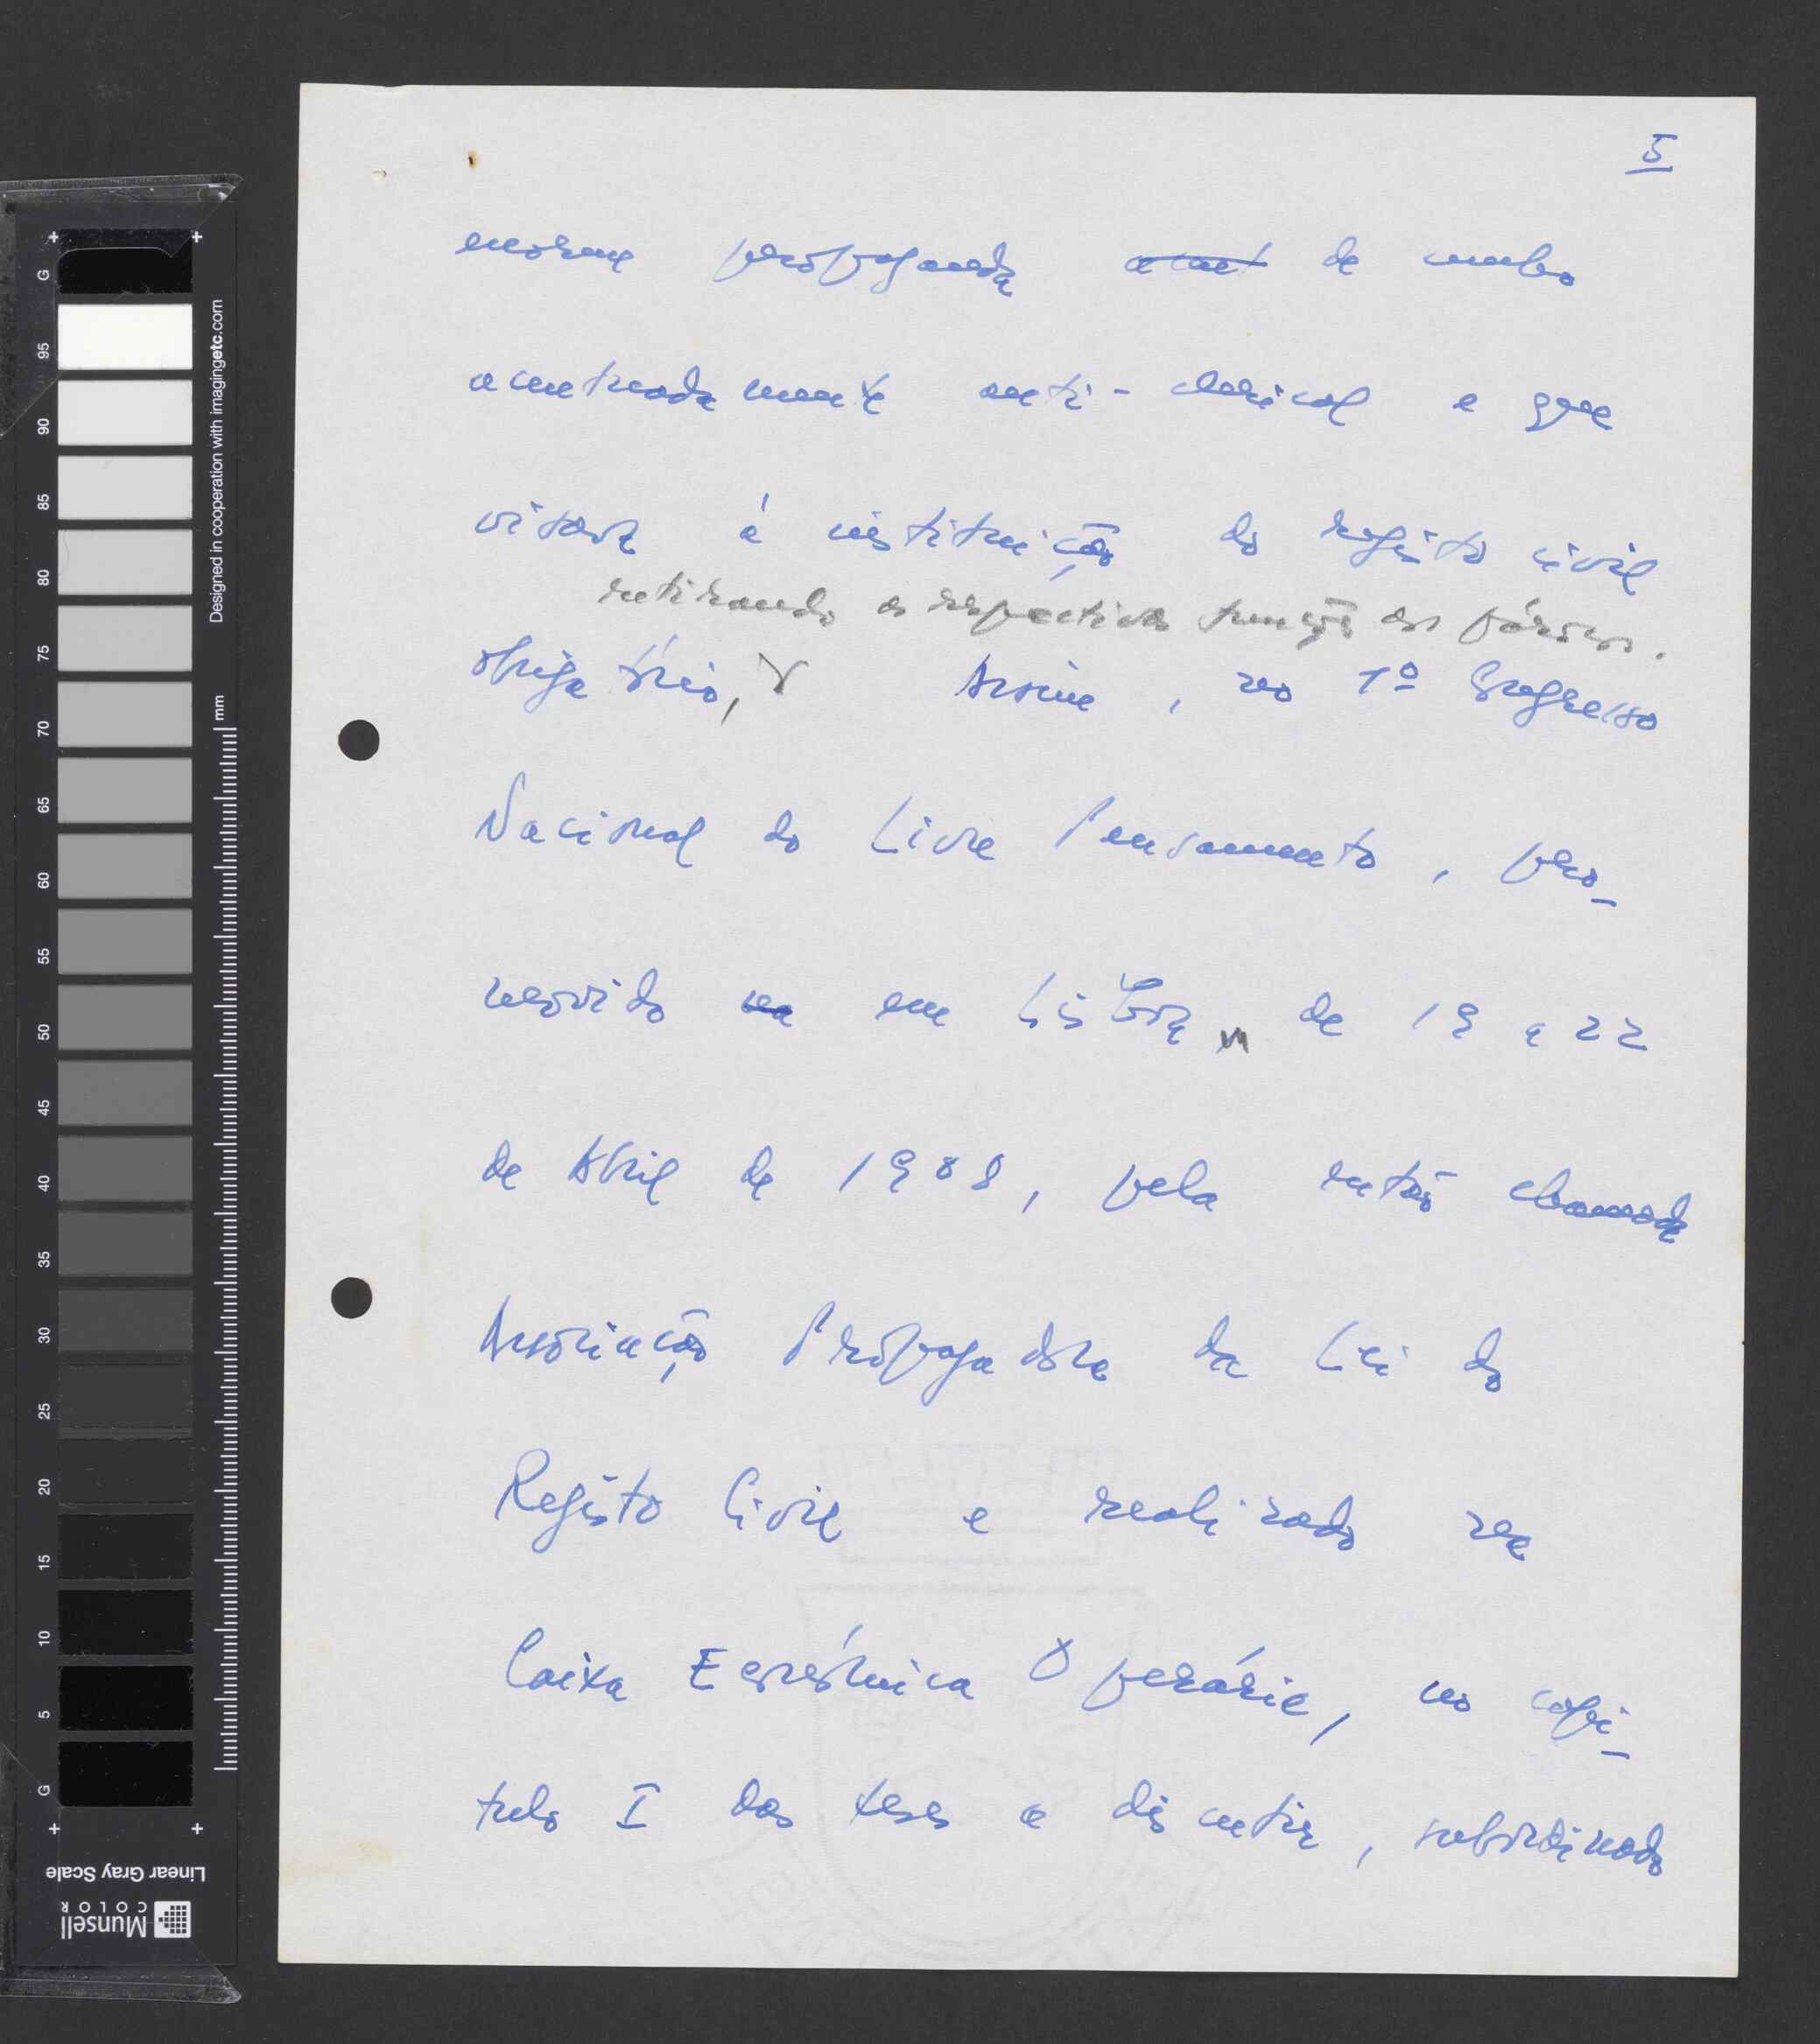 5
enorme propaganda de cunho
acentuadamente anti-clerical e que
visava à instituição do registo civil
retirando as respectivas funções aos párocos.
obrigatório, Assim, no 1º Congresso
Nacional do Livre Pensamento, pro-
movido na em Lisboa, de 19 a 22
de Abril de 1908, pela então chamada
Associação Propagadora da Lei do
Registo Civil e realizado na
Caixa Económica Operária, no capí-
tulo I das teses a discutir, subordinado
G 95 90 85 80 75 70 65 60 55 50 45 40 35 30 25 20 15 10 5 G
Designed in cooperation with imagingetc.com
mm
Linear Gray Scale
Munsell
COLOR